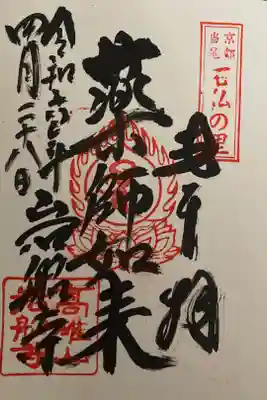 京都
当尾
石仏の里
奉拝
薬師如来
岩船寺
令和年
四月二十八日
高雄山
岩船寺